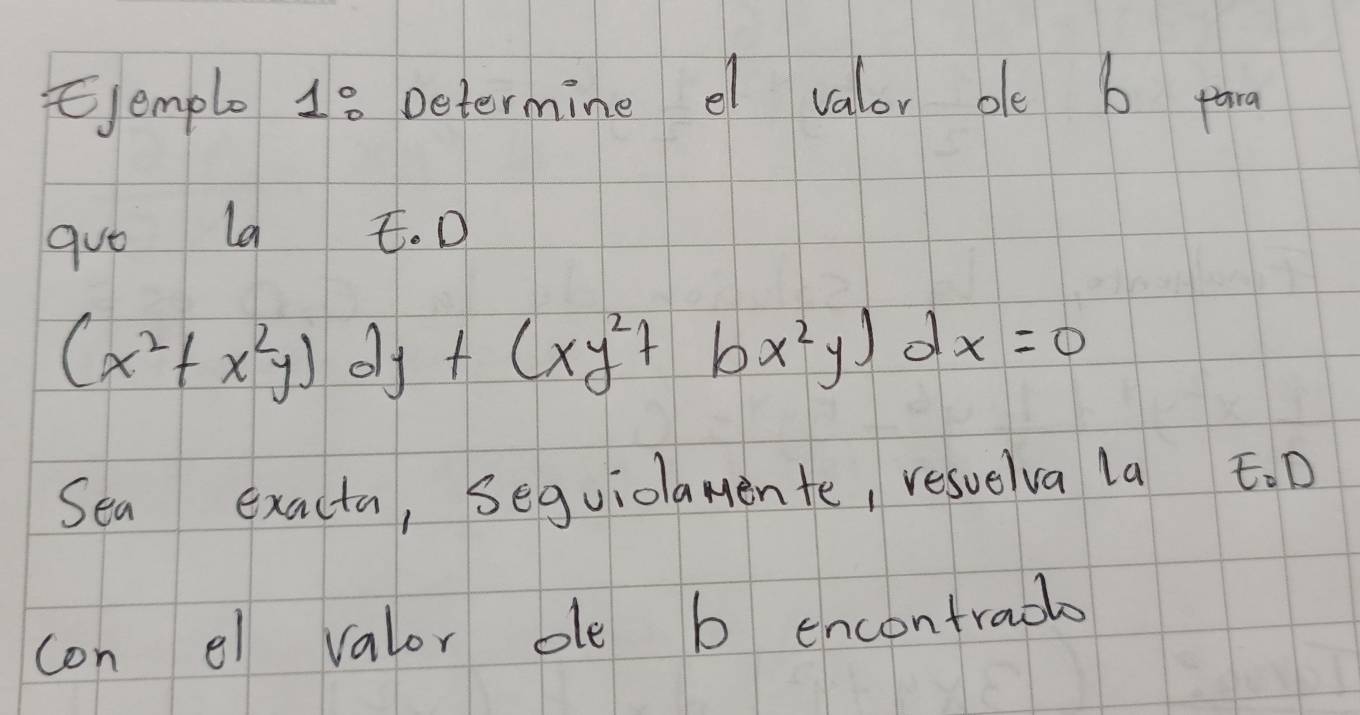 Ejemplo 1: Determine el valor de b para
que la E.D
(x²+x²y) dy + (xy²+ bx²y) dx = 0
Sea exacta, Seguidamente, resuelva la E.D
con el valor de b encontrado